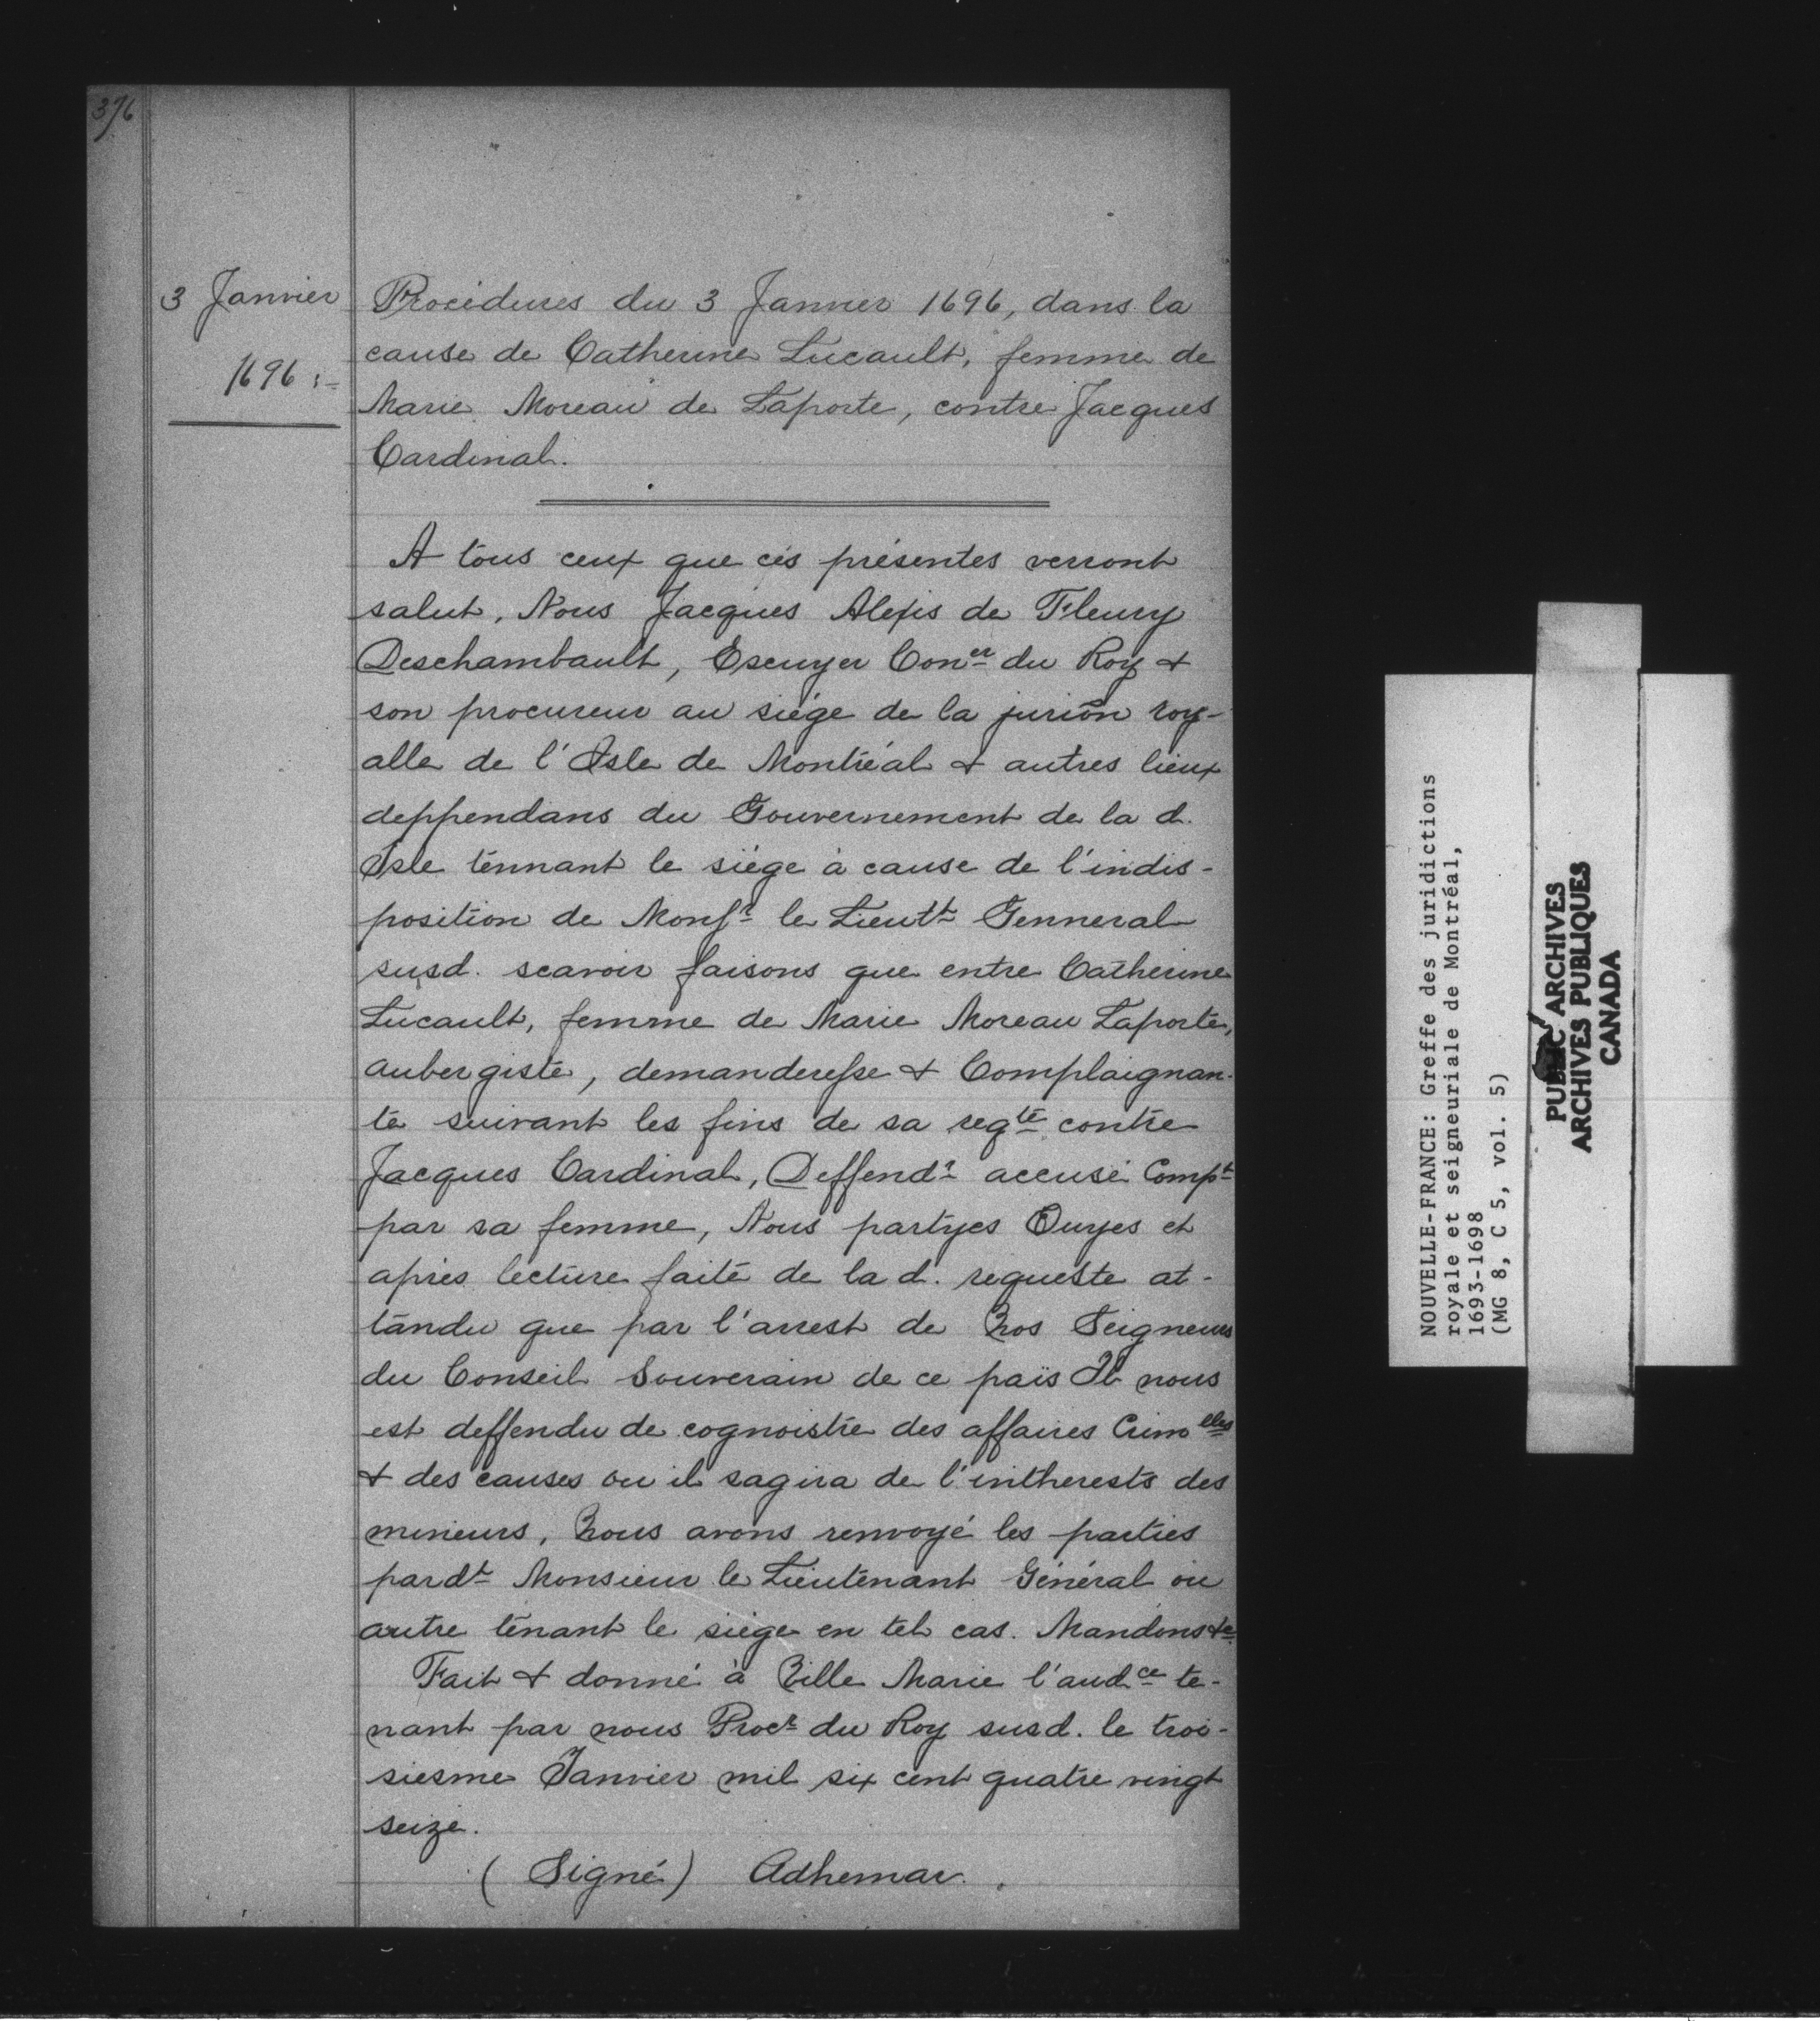 376
3 Janvier
1696 :-
Procédures du 3 Janvier 1696, dans la
cause de Catherine Lucault, femme de
Marie Moreau de Laporte, contre Jacques
Cardinal.
A tous ceux que ces présentes verront
salut, Nous Jacques Alexis de Fleury
Deschambault, Escuyer Coner du Roy &
son procureur au siége de la juriōn roy-
alle de l'Isle de Montréal & autres lieux
deppendans du Gouvernement de la d.
Isle tennant le siége à cause de l'indis-
position de Monsr le Lieutt Genneral
susd. scavoir faisons que entre Catherine
Lucault, femme de Marie Moreau Laporte,
aubergiste, demanderesse & Complaignan-
te suivant les fins de sa reqte contre
Jacques Cardinal, Deffendr accusé Compt
par sa femme, Nous partyes Ouyes et
après lecture faite de la d. requeste at-
tandu que par l'arrest de Nos Seigneurs
du Conseil Souverain de ce païs Il nous
est deffendu de cognoistre des affaires Crimelles
& des causes ou il sagira de l'intherests des
mineurs, Nous avons renvoyé les parties
pardt Monsieur le Lieutenant Général ou
autre tenant le siége en tel cas. Mandons &c
Fait & donné à Ville Marie l'audce te-
nant par nous Procr du Roy susd. le troi-
siesme Janvier mil six cent quatre vingt
seize.
(Signé) Adhemar.
NOUVELLE-FRANCE: Greffe des juridictions
royale et seigneuriale de Montréal,
1693-1698
(MG 8, C 5, vol. 5)
PUBLIC ARCHIVES
ARCHIVES PUBLIQUES
CANADA